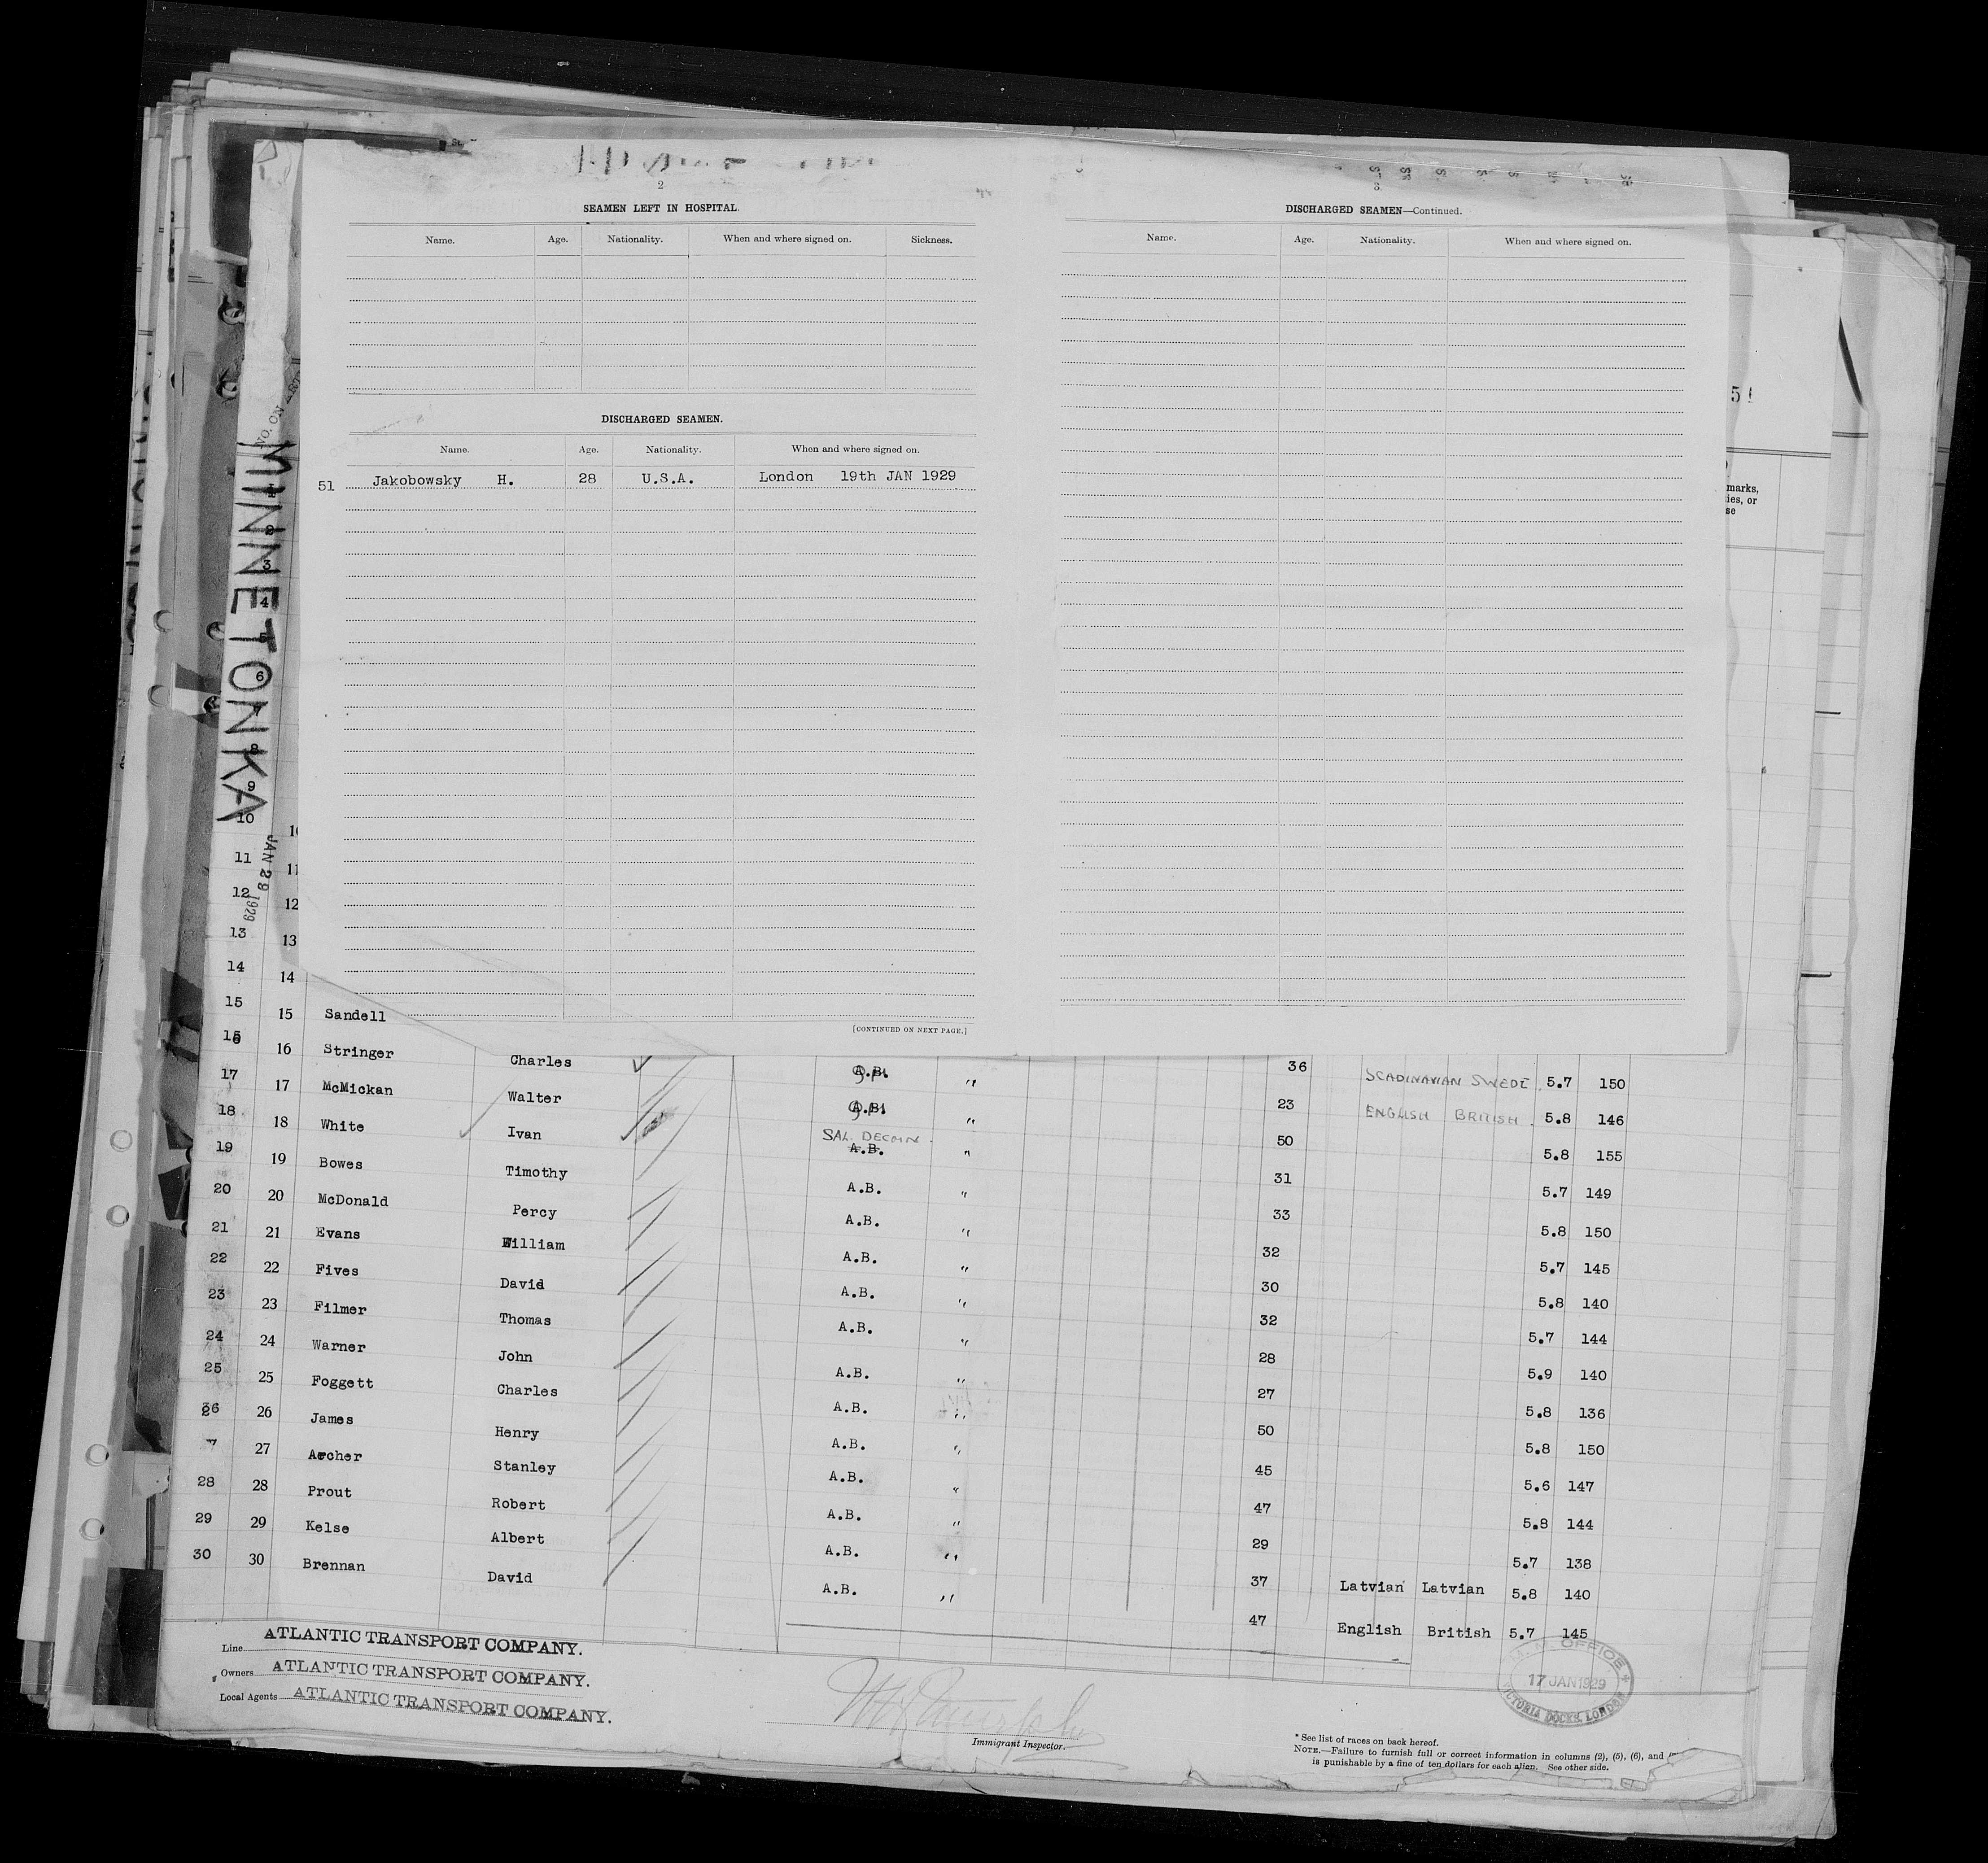 2
SEAMEN LEFT IN HOSPITAL.
Name. Age. Nationality. When and where signed on. Sickness.
DISCHARGED SEAMEN.
Name. Age. Nationality. When and where signed on.
51 Jakobowsky H. 28 U.S.A. London 19th JAN 1929
[CONTINUED ON NEXT PAGE.]
3
DISCHARGED SEAMEN—Continued.
Name. Age. Nationality. When and where signed on.
51
marks,
ies, or
se
NO. ON
MINNETONKA
JAN 29 1929
3
4
6
8
9
10
11 11
12 12
13 13
14 14
15 15 Sandell
16 16 Stringer Charles A.B. " 36 SCADINAVIAN SWEDE 5.7 150
17 17 McMickan Walter A.B. " 23 ENGLISH BRITISH 5.8 146
18 18 White Ivan SAL. DECMN. A.B. " 50 5.8 155
19 19 Bowes Timothy A.B. " 31 5.7 149
20 20 McDonald Percy A.B. " 33 5.8 150
21 21 Evans William A.B. " 32 5.7 145
22 22 Fives David A.B. " 30 5.8 140
23 23 Filmer Thomas A.B. " 32 5.7 144
24 24 Warner John A.B. " 28 5.9 140
25 25 Foggett Charles A.B. " 27 5.8 136
26 26 James Henry A.B. " 50 5.8 150
7 27 Archer Stanley A.B. " 45 5.6 147
28 28 Prout Robert A.B. " 47 5.8 144
29 29 Kelse Albert A.B. " 29 5.7 138
30 30 Brennan David A.B. " 37 Latvian Latvian 5.8 140
47 English British 5.7 145
Line ATLANTIC TRANSPORT COMPANY.
Owners ATLANTIC TRANSPORT COMPANY.
Local Agents ATLANTIC TRANSPORT COMPANY.
Immigrant Inspector.
M.M. OFFICE
17 JAN 1929
VICTORIA DOCKS, LONDON
* See list of races on back hereof.
NOTE.—Failure to furnish full or correct information in columns (2), (5), (6), and
is punishable by a fine of ten dollars for each alien. See other side.